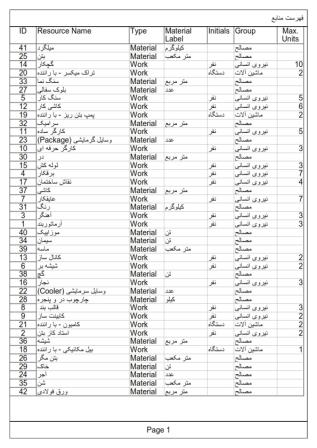 فهرست منابع
ID Resource Name Type Material Label Initials Group Max. Units
41 میلگرد Material کیلوگرم مصالح
25 بتن Material متر مکعب مصالح
14 گچکار Work نفر نیروی انسانی 10
20 تراک میکسر - با راننده Work دستگاه ماشین آلات 2
33 سنگ نما Material متر مربع مصالح
27 بلوک سفالی Material عدد مصالح
5 سنگ کار Work نفر نیروی انسانی 5
12 کاشی کار Work نفر نیروی انسانی 6
19 پمپ بتن ریز - با راننده Work دستگاه ماشین آلات 2
32 سرامیک Material متر مربع مصالح
11 کارگر ساده Work نفر نیروی انسانی 5
23 وسایل گرمایشی (Package) Material عدد مصالح
10 کارگر حرفه ای Work نفر نیروی انسانی 3
30 در Material متر مربع مصالح
15 لوله کش Work نفر نیروی انسانی 3
4 برقکار Work نفر نیروی انسانی 7
17 نقاش ساختمان Work نفر نیروی انسانی 4
37 کاشی Material متر مربع مصالح
7 عایقکار Work نفر نیروی انسانی 7
31 رنگ Material کیلوگرم مصالح
3 آهنگر Work نفر نیروی انسانی 3
1 آرماتوربند Work نفر نیروی انسانی 3
40 موزاییک Material تن مصالح
34 سیمان Material تن مصالح
39 ماسه Material متر مکعب مصالح
13 کانال ساز Work نفر نیروی انسانی 2
6 شیشه بر Work نفر نیروی انسانی 2
38 گچ Material تن مصالح
16 نجار Work نفر نیروی انسانی 3
22 وسایل سرمایشی (Cooler) Material عدد مصالح
28 چارچوب در و پنجره Material کیلو مصالح
8 قالب بند Work نفر نیروی انسانی 3
9 کابینت ساز Work نفر نیروی انسانی 2
21 کامیون - با راننده Work دستگاه ماشین آلات 2
2 استاد کار بتن Work نفر نیروی انسانی 2
36 شیشه Material متر مربع مصالح
18 بیل مکانیکی - با راننده Work دستگاه ماشین آلات 1
26 بتن مگر Material متر مکعب مصالح
29 خاک Material تن مصالح
24 آجر Material عدد مصالح
35 شن Material متر مکعب مصالح
42 ورق فولادی Material متر مربع مصالح
Page 1